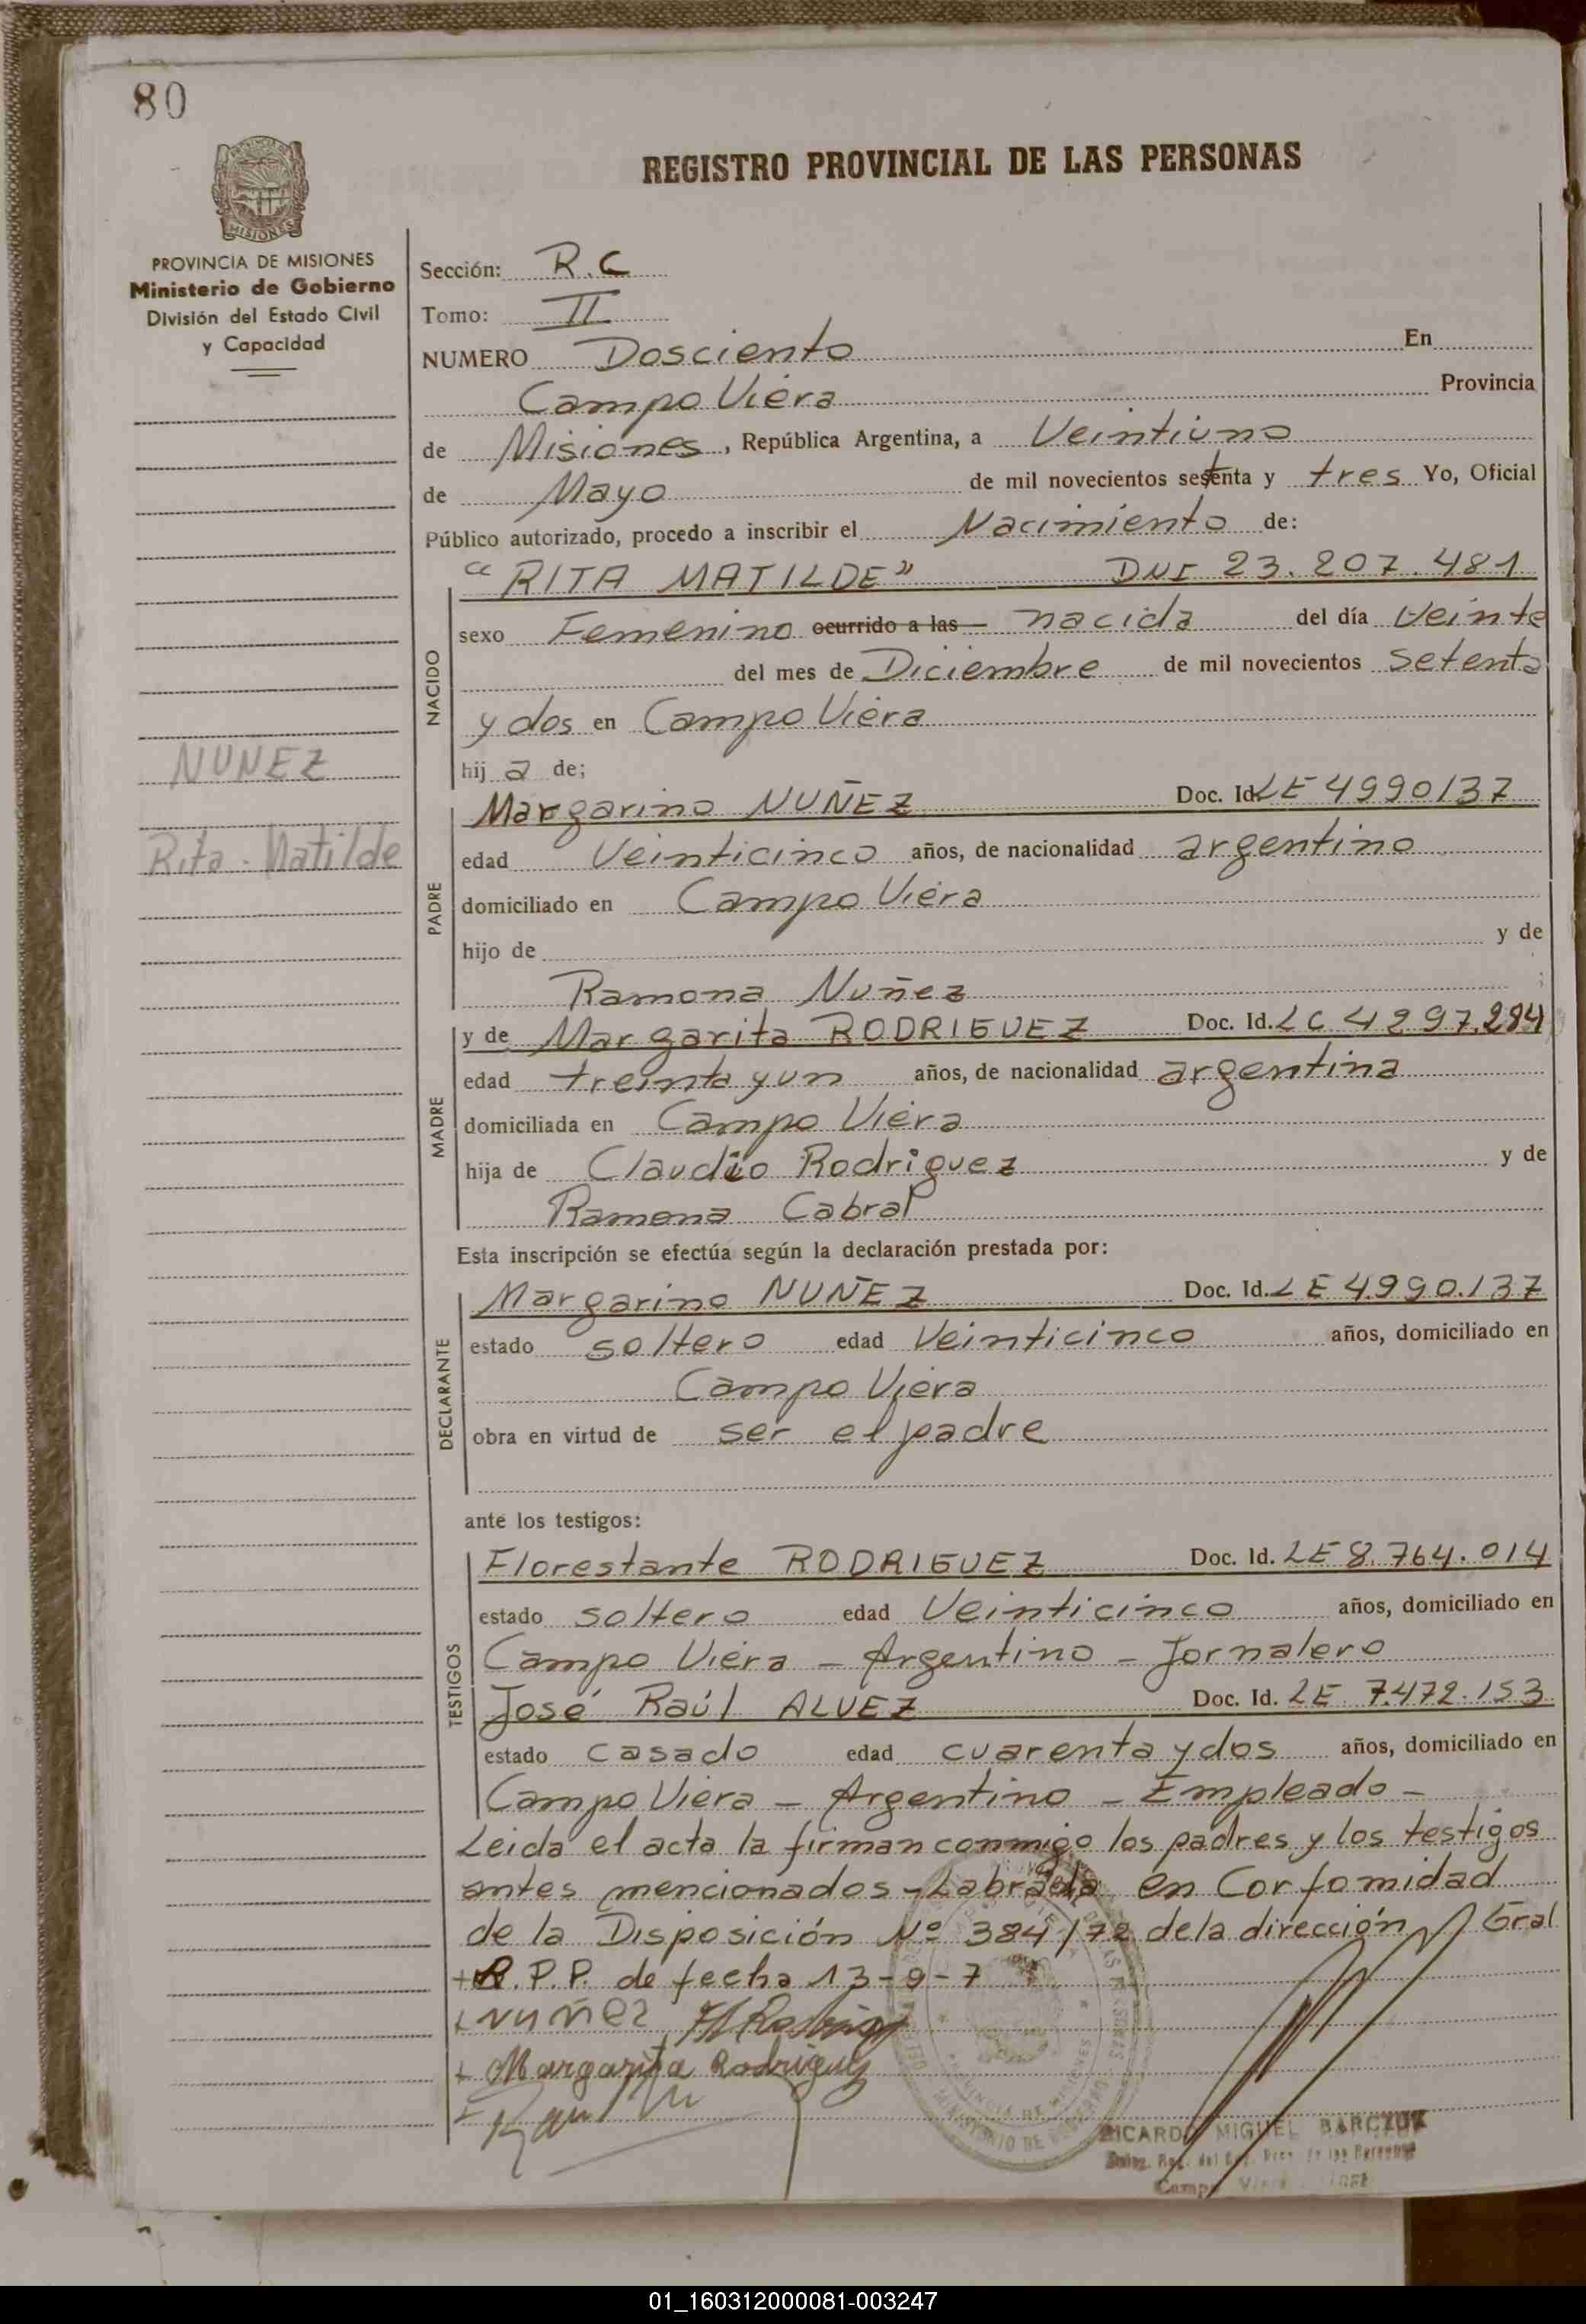 80
REGISTRO PROVINCIAL DE LAS PERSONAS
MISIONES
PROVINCIA DE MISIONES
Ministerio de Gobierno
División del Estado Civil
y Capacidad
NUNEZ
Rita - Matilde
Sección: R.C
Tomo: II
NUMERO Dosciento En
Campo Viera Provincia
de Misiones, República Argentina, a Veintiuno
de Mayo de mil novecientos setenta y tres Yo, Oficial
Público autorizado, procedo a inscribir el Nacimiento de:
NACIDO
"RITA MATILDE" DNI 23.207.481
sexo Femenino ocurrido a las nacida del día Veinte
del mes de Diciembre de mil novecientos setenta
y dos en Campo Viera
hij a de;
PADRE
Margarino NUÑEZ Doc. Id. LE 4990137
edad Veinticinco años, de nacionalidad argentino
domiciliado en Campo Viera
hijo de y de
Ramona Nuñez ;
MADRE
y de Margarita RODRIGUEZ Doc. Id. LC 4297.284
edad treinta y un años, de nacionalidad argentina
domiciliada en Campo Viera
hija de Claudio Rodriguez y de
Ramona Cabral
Esta inscripción se efectúa según la declaración prestada por:
DECLARANTE
Margarino NUÑEZ Doc. Id. LE 4.990.137
estado soltero edad Veinticinco años, domiciliado en
Campo Viera
obra en virtud de ser el padre
ante los testigos:
TESTIGOS
Florestante RODRIGUEZ Doc. Id. LE 8.764.014
estado soltero edad Veinticinco años, domiciliado en
Campo Viera - Argentino - Jornalero
José Raúl ALVEZ Doc. Id. LE 7.472.153
estado casado edad cuarenta y dos años, domiciliado en
Campo Viera - Argentino - Empleado -
Leida el acta la firman conmigo los padres y los testigos
antes mencionados - Labrada en Corfomidad
de la Disposición Nº 384/72 de la dirección Gral
+R.P.P. de fecha 13-9-7
+ Nuñez
+ Margarita Rodriguez
RICARDO MIGUEL BARCZUK
01_160312000081-003247